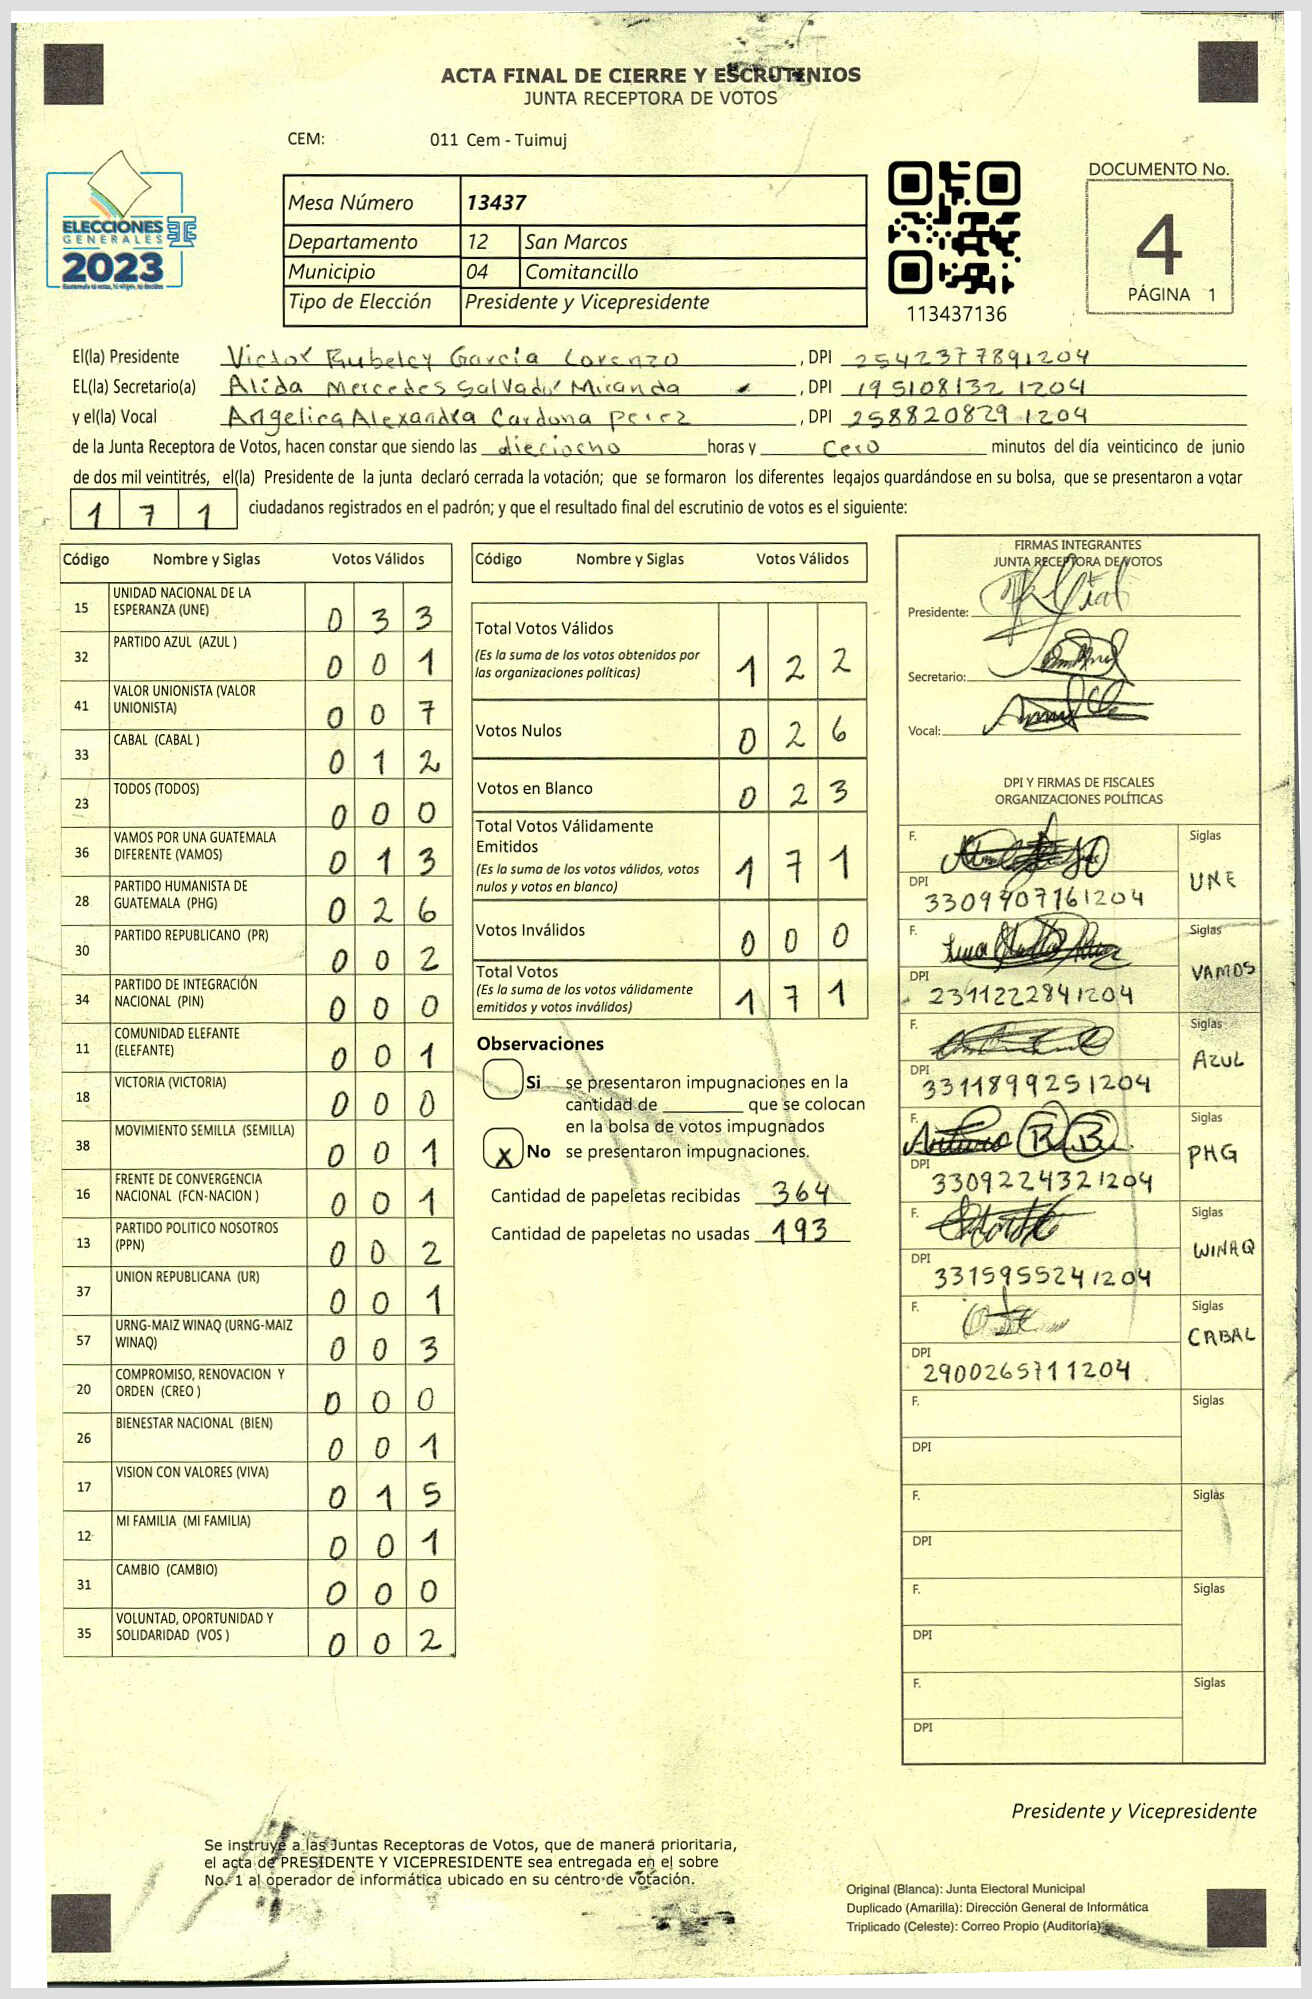 ACTA FINAL DE CIERRE Y ESCRUTINIOS
JUNTA RECEPTORA DE VOTOS
CEM: 011 Cem - Tuimuj
ELECCIONES
GENERALES
2023
Mesa Número 13437
Departamento 12 San Marcos
Municipio 04 Comitancillo
Tipo de Elección Presidente y Vicepresidente
113437136
DOCUMENTO No.
4
PÁGINA 1
El(la) Presidente Victor Rubelcy García Lorenzo, DPI 2542377891204
EL(la) Secretario(a) Alida Mercedes Salvador Miranda, DPI 195108132 1204
y el(la) Vocal Angelica Alexandra Cardona Perez, DPI 258820829 1204
de la Junta Receptora de Votos, hacen constar que siendo las dieciocho horas y cero minutos del día veinticinco de junio
de dos mil veintitrés, el(la) Presidente de la junta declaró cerrada la votación; que se formaron los diferentes legajos guardándose en su bolsa, que se presentaron a votar
1 7 1 ciudadanos registrados en el padrón; y que el resultado final del escrutinio de votos es el siguiente:
Código Nombre y Siglas Votos Válidos
15 UNIDAD NACIONAL DE LA ESPERANZA (UNE) 0 3 3
32 PARTIDO AZUL (AZUL ) 0 0 1
41 VALOR UNIONISTA (VALOR UNIONISTA) 0 0 7
33 CABAL (CABAL ) 0 1 2
23 TODOS (TODOS) 0 0 0
36 VAMOS POR UNA GUATEMALA DIFERENTE (VAMOS) 0 1 3
28 PARTIDO HUMANISTA DE GUATEMALA (PHG) 0 2 6
30 PARTIDO REPUBLICANO (PR) 0 0 2
34 PARTIDO DE INTEGRACIÓN NACIONAL (PIN) 0 0 0
11 COMUNIDAD ELEFANTE (ELEFANTE) 0 0 1
18 VICTORIA (VICTORIA) 0 0 0
38 MOVIMIENTO SEMILLA (SEMILLA) 0 0 1
16 FRENTE DE CONVERGENCIA NACIONAL (FCN-NACION ) 0 0 1
13 PARTIDO POLITICO NOSOTROS (PPN) 0 0 2
37 UNION REPUBLICANA (UR) 0 0 1
57 URNG-MAIZ WINAQ (URNG-MAIZ WINAQ) 0 0 3
20 COMPROMISO, RENOVACION Y ORDEN (CREO ) 0 0 0
26 BIENESTAR NACIONAL (BIEN) 0 0 1
17 VISION CON VALORES (VIVA) 0 1 5
12 MI FAMILIA (MI FAMILIA) 0 0 1
31 CAMBIO (CAMBIO) 0 0 0
35 VOLUNTAD, OPORTUNIDAD Y SOLIDARIDAD (VOS ) 0 0 2
Código Nombre y Siglas Votos Válidos
Total Votos Válidos 1 2 2
(Es la suma de los votos obtenidos por
las organizaciones políticas)
Votos Nulos 0 2 6
Votos en Blanco 0 2 3
Total Votos Válidamente
Emitidos 1 7 1
(Es la suma de los votos válidos, votos
nulos y votos en blanco)
Votos Inválidos 0 0 0
Total Votos 1 7 1
(Es la suma de los votos válidamente
emitidos y votos inválidos)
Observaciones
Si se presentaron impugnaciones en la
cantidad de ________ que se colocan
en la bolsa de votos impugnados
X No se presentaron impugnaciones.
Cantidad de papeletas recibidas 364
Cantidad de papeletas no usadas 193
FIRMAS INTEGRANTES
JUNTA RECEPTORA DE VOTOS
Presidente:
Secretario:
Vocal:
DPI Y FIRMAS DE FISCALES
ORGANIZACIONES POLÍTICAS
F. Siglas
DPI 3309907161204 UNE
F. Siglas
DPI 2311222841204 VAMOS
F. Siglas
DPI 3311899251204 AZUL
F. Siglas
DPI 3309224321204 PHG
F. Siglas
DPI 3315955241204 WINAQ
F. Siglas
DPI 2900265711204 CABAL
F. Siglas
DPI
F. Siglas
DPI
F. Siglas
DPI
F. Siglas
DPI
Presidente y Vicepresidente
Se instruye a las Juntas Receptoras de Votos, que de manera prioritaria,
el acta de PRESIDENTE Y VICEPRESIDENTE sea entregada en el sobre
No. 1 al operador de informática ubicado en su centro de votación.
Original (Blanca): Junta Electoral Municipal
Duplicado (Amarilla): Dirección General de Informática
Triplicado (Celeste): Correo Propio (Auditoría)